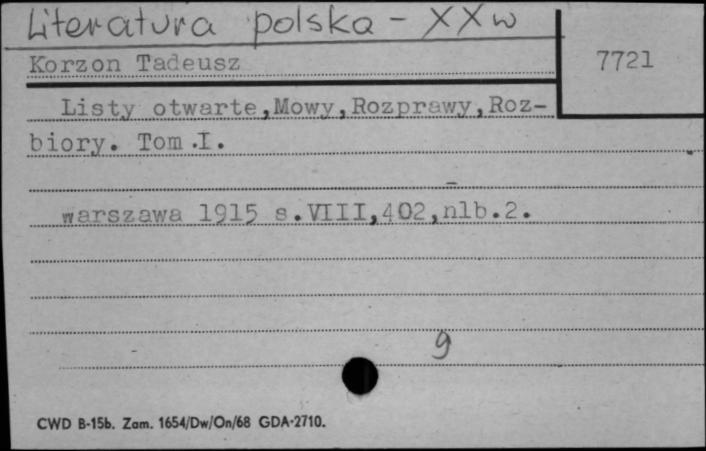 Literatura polska - XX w
7721
Korzon Tadeusz
Listy otwarte,Mowy,Rozprawy,Roz-
biory. Tom.I.
warszawa 1915 s.VIII,402,nlb.2.
9
CWD B-15b. Zam. 1654/Dw/On/68 GDA-2710.